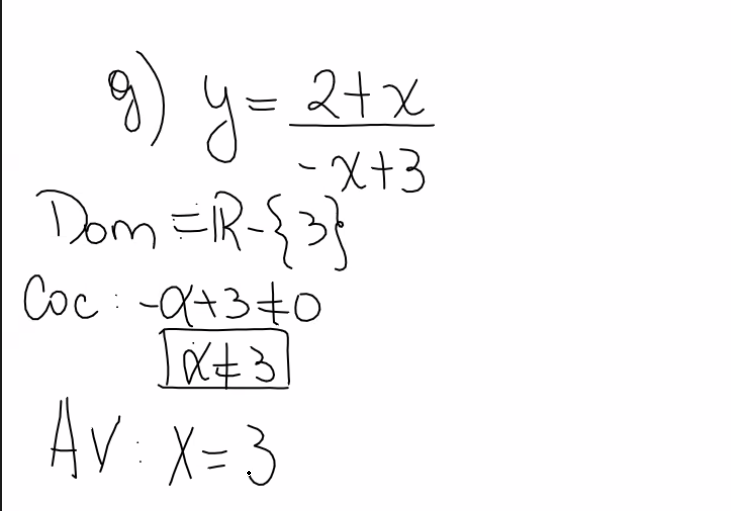 g) y = \frac{2+x}{-x+3}
Dom = ℝ - {3}
Coc : -x+3≠0
x≠3
AV: x=3